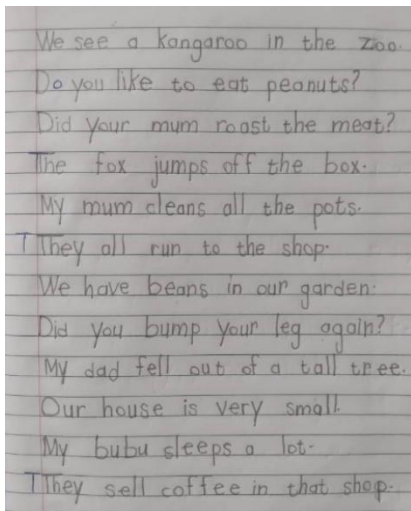 We see a kangaroo in the zoo.
Do you like to eat peanuts?
Did your mum roast the meat?
The fox jumps off the box.
My mum cleans all the pots.
T They all run to the shop.
We have beans in our garden.
Did you bump your leg again?
My dad fell out of a tall tree.
Our house is very small.
My bubu sleeps a lot.
T They sell coffee in that shop.